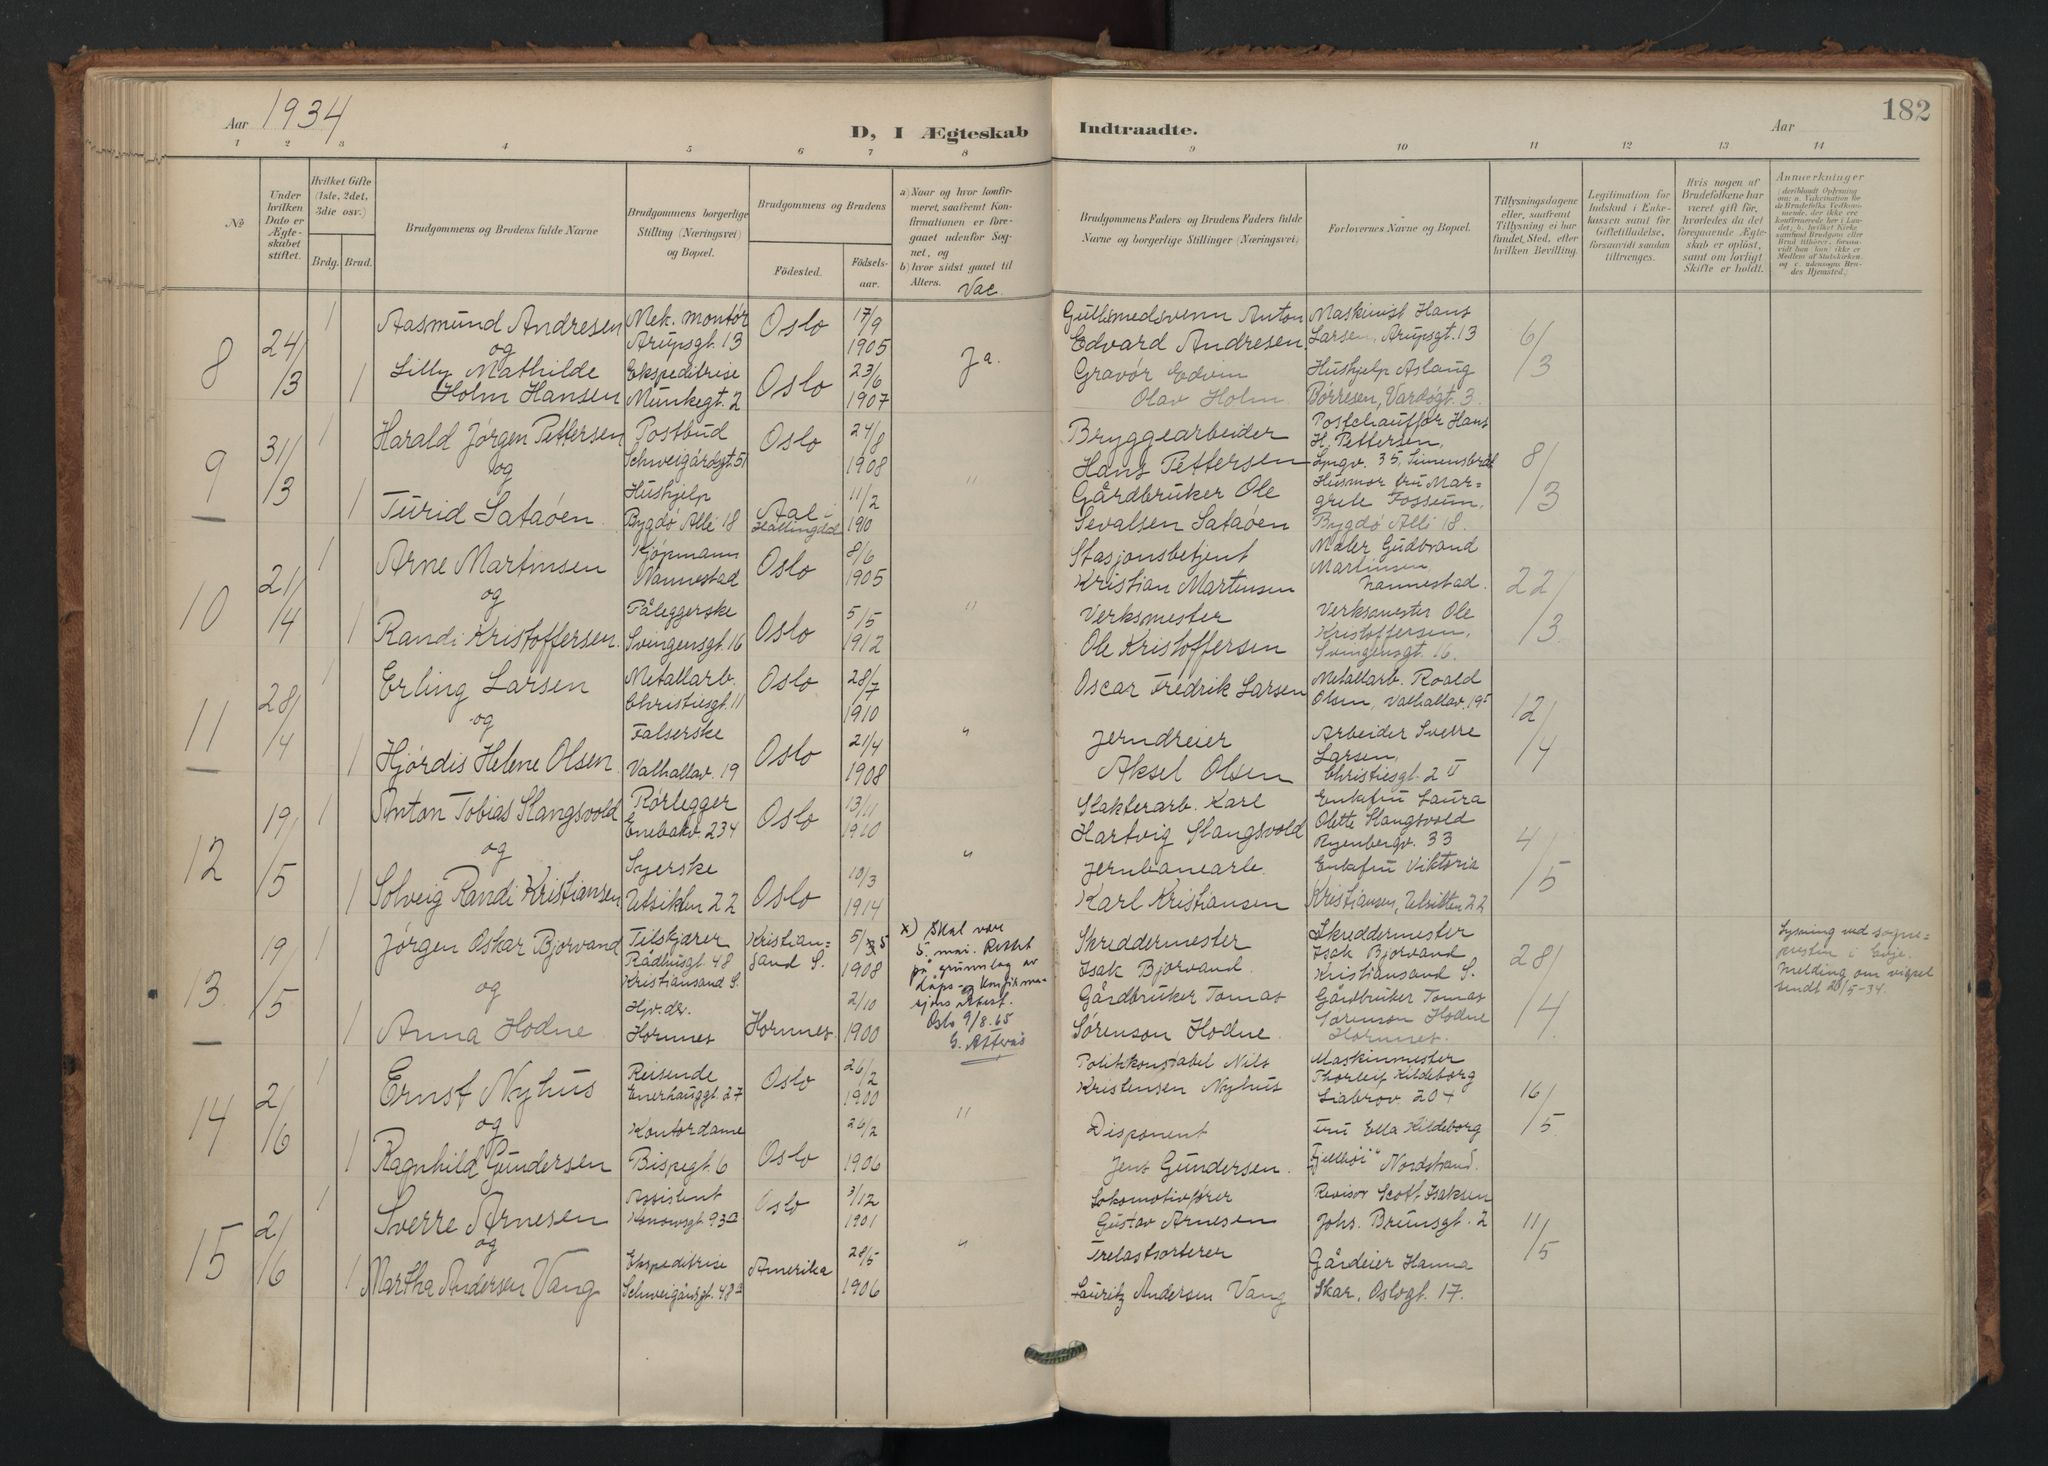 182
Aar 1934
D, I Ægteskab
Indtraadte.
Aar
1 2 3 4 5 6 7 8 9 10 11 12 13 14
№
Under hvilken Dato er Ægteskabet stiftet.
Hvilket Gifte (1ste, 2det, 3die osv.)
Brdg. Brud.
Brudgommens og Brudens fulde Navne
Brudgommens borgerlige Stilling (Næringsvei) og Bopæl.
Brudgommens og Brudens
Födested.
Födselsaar.
a) Naar og hvor konfirmeret, saafremt Konfirmationen er foregaaet udenfor Sognet, og
b) hvor sidst gaaet til Alters.
Vac.
Brudgommens Faders og Brudens Faders fulde Navne og borgerlige Stillinger (Næringsvei).
Forlovernes Navne og Bopæl.
Tillysningsdagene eller, saafremt Tillysning ei har fundet Sted, efter hvilken Bevilling.
Legitimation for Indskud i Enkekassen samt for Giftetilladelse, forsaavidt saadan tiltrænges.
Hvis nogen af Brudefolkene har været gift för, hvorledes da det foregaaende Ægteskab er oplöst, samt om lovligt Skifte er holdt.
Anmærkninger
8 24/3 1 Aasmund Andresen Mek. montør Arupsgt. 13 Oslo 17/9 1905 Ja. Gullsmedsvenn Anton Edvard Andresen. Maskinist Hans Larsen, Arupsgt. 13 6/3
og
1 Lilly Mathilde Holm Hansen Ekspeditrise Munkegt. 2 Oslo 23/6 1907 Gravør Edvin Olav Holm. Hushjelp Aslaug Børresen, Vardøgt. 3.
9 31/3 1 Harald Jørgen Pettersen Postbud Schweigårdsgt. 51 Oslo 24/8 1908 " Bryggearbeider Hans Pettersen Postchauffør Hans H. Pettersen, 35, 8/3
og
1 Turid Sataøen. Hushjelp Bygdø Allé 18 Aal i Hallingdal 11/2 190 Gårdbruker Ole Sevalsen Sataøen Husmor fru Margrete Fosseum, Bygdø Allé 18.
10 21/4 1 Arne Martinsen Kjøpmann Nannestad Oslo 8/6 1905 " Stasjonsbetjent Kristian Martensen Maler Gudbrand Martinsen, Nannestad. 22/3.
og
1 Randi Kristoffersen. Påleggerske Svingensgt. 16 Oslo 5/5 1912 Verksmester Ole Kristoffersen Verksmester Ole Kristoffersen, Svingensgt. 16.
11 28/4 1 Erling Larsen Metallarb. Christiesgt. 11 Oslo 28/7 1910 " Oscar Fredrik Larsen Metallarb. Roald Olsen, Valhallav. 19 12/4
og
1 Hjørdis Helene Olsen. Falserske Valhallav. 19 Oslo 21/4 1908 Jerndreier Aksel Olsen Arbeider Sverre Larsen, Christiesgt. 2 II
12 19/5 1 Anton Tobias Slangsvold Rørlegger Enebakv. 234 Oslo 13/11 1910 " Slakterarb. Karl Hartvig Slangsvold Enkefru Laura Olette Slangsvold Ryenbergv. 33 4/5
og
1 Solveig Randi Kristiansen Syerske Utsikten 22 Oslo 10/3 1914 Jernbanearb. Karl Kristiansen Enkefru Viktoria Kristiansen, Utsikten 22
13 19/5 1 Jørgen Oskar Bjorvand Tilskjærer Rådhusgt. 48 Kristiansand S. Kristiansand S. 5/5 1908 Skreddermester Isak Bjorvand. Skreddermester Isak Bjorvand Kristiansand S. 28/4
x) Skal være 5. mai. Rettet på grunnlag av dåps- og konfirmasjonsattest. Oslo 9/8.65
Lysning ved sognepresten i Evje. Melding om vigsel sendt 20/5-34.
og
1 Anna Hodne Hjv. dr. Hornnes Hornnes. 2/10 1900 Gårdbruker Tomas Sørenson Hodne Gårdbruker Tomas Sørenson Hodne Hornnes.
14 2/6 1 Ernst Nyhus Reisende Enerhauggt. 27 Oslo 26/2 1900 " Politikonstabel Nils Kristensen Nyhus Maskinmester Thorleif Kildeborg Liabrov. 20 16/5
og
1 Ragnhild Gundersen Kontordame Bispegt. 6 Oslo 26/2 1906 Disponent Jens Gundersen. Fru Ella Kildeborg "Fjellhøi" Nordstrand.
15 2/6 1 Sverre Arnesen Assistent Kanowsgt 93a Oslo 3/12 1901 " Lokomotivfører Gustav Arnesen Revisor Scott Isaksen Johs. Brunsgt. 2 11/5
og
1 Martha Andersen Vang Ekspeditrise Schweigårdsgt. 48a Amerika 28/5 1906 Trelastsorterer Lauritz Andersen Vang Gårdeier Hanna Skar, Oslogt. 17.